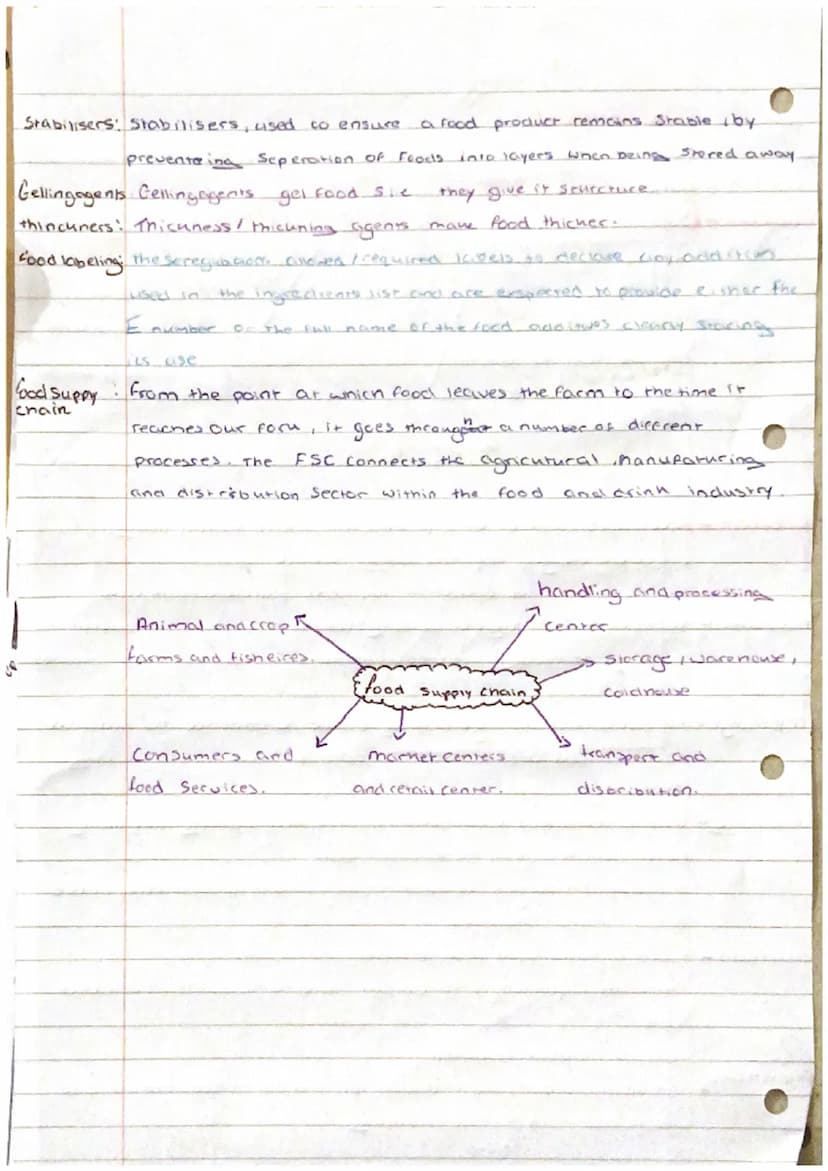 Stabilisers: Stabilisers, used to ensure a food product remains stable, by
preventing Seperation of foods into layers when being stored away
Gellingagents Gellingagents gel food s i.e they give it structure
thinckners: Thickness/thickning agents make food thicker.
food labeling: the seregulations allowed/required labels to declare any additives
used in the ingredients list and are expected to provide either the
E number or the full name of the food additives clearly stating
its use
food suppy chain : From the point at which food leaves the farm to the time it
reaches our fork, it goes through a number of different
processes. The FSC connects the agricutural, manufaturing
and distribution sector within the food and drink industry.
handling and processing
center
Animal and crop
farms and fisheires.
storage, warehouse,
coldhouse
food supply chain
Consumers and
food services.
market centers
and retail center.
transport and
distribution.